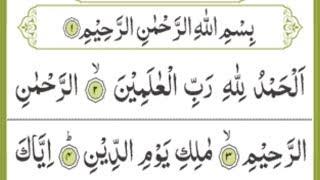 بِسْمِ اللهِ الرَّحْمٰنِ الرَّحِيْمِ ۝۱
اَلْحَمْدُ لِلّٰهِ رَبِّ الْعٰلَمِيْنَ ۙ۝۲ الرَّحْمٰنِ
الرَّحِيْمِ ۙ۝۳ مٰلِكِ يَوْمِ الدِّيْنِ ؕ۝۴ اِيَّاكَ